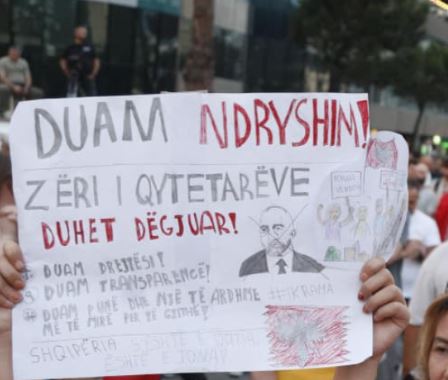 DUAM NDRYSHIM!
ZËRI I QYTETARËVE
DUHET DËGJUAR!
DUAM DREJTËSI!
DUAM TRANSPARENCË!
DUAM PUNË DHE NJË TË ARDHME
MË TË MIRË PËR TË GJITHË!
#IKRAMA
SHQIPËRIA
ËSHTË JONA!